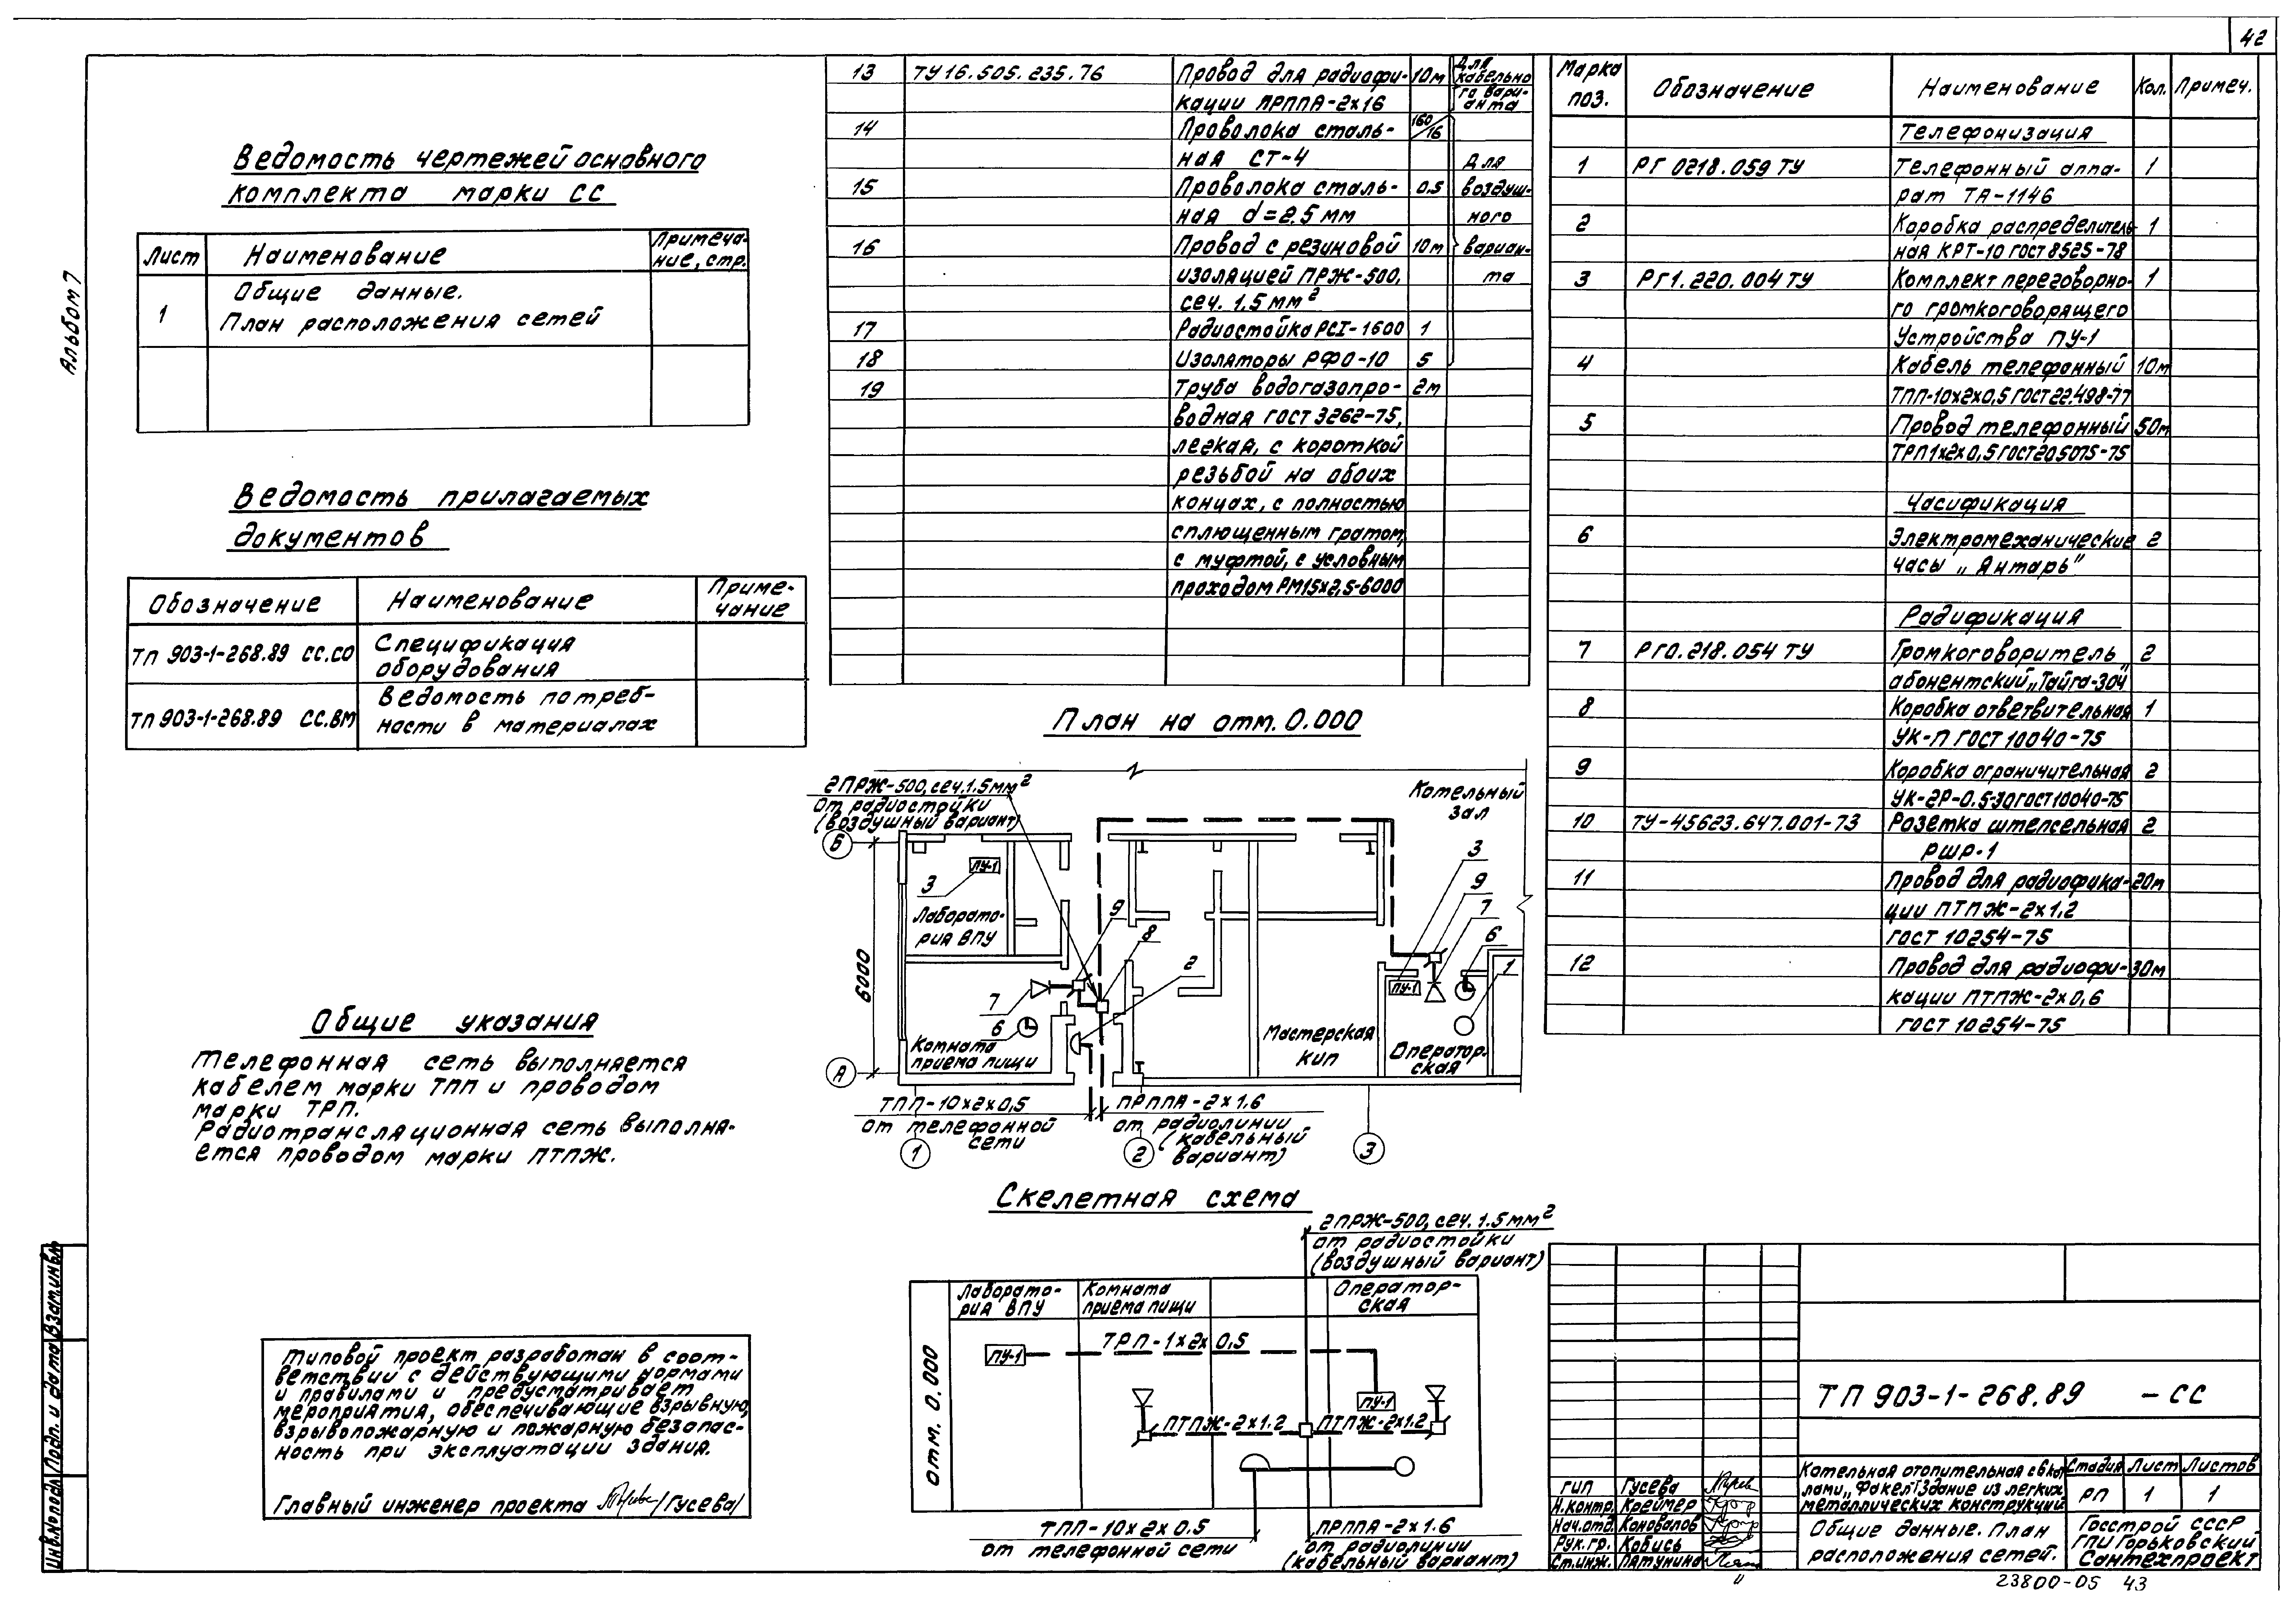 42
Альбом 7
Ведомость чертежей основного
комплекта марки СС
Лист
Наименование
Примеча-
ние, стр.
1
Общие данные.
План расположения сетей
Ведомость прилагаемых
документов
Обозначение
Наименование
Приме-
чание
ТП 903-1-268.89 СС.СО
Спецификация
оборудования
ТП 903-1-268.89 СС.ВМ
Ведомость потреб-
ности в материалах
Общие указания
Телефонная сеть выполняется
кабелем марки ТПП и проводом
марки ТРП.
Радиотрансляционная сеть выполня-
ется проводом марки ПТПЖ.
Типовой проект разработан в соот-
ветствии с действующими нормами
и правилами и предусматривает
мероприятия, обеспечивающие взрывную,
взрывопожарную и пожарную безопас-
ность при эксплуатации здания.
Главный инженер проекта /Гусева/
13 ТУ16.505.235.76 Провод для радиофи- 10м для
кабельно
кации ПРППА-2х16 го вари-
анта
14 Проволока сталь- 160/16
ная СТ-4 для
15 Проволока сталь- 0.5 воздуш-
ная d=2.5 мм ного
16 Провод с резиновой 10м вариан-
изоляцией ПРЖ-500, та
сеч. 1.5 мм²
17 Радиостойка РСI-1600 1
18 Изоляторы РФО-10 5
19 Труба водогазопро- 2м
водная ГОСТ 3262-75,
легкая, с короткой
резьбой на обоих
концах, с полностью
сплющенным гратом,
с муфтой, с условным
проходом РМ15х2,5-6000
Марка
поз.
Обозначение
Наименование
Кол.
Примеч.
Телефонизация
1 РГ 0218.059 ТУ Телефонный аппа- 1
рат ТА-1146
2 Коробка распределитель- 1
ная КРТ-10 ГОСТ 8525-78
3 РГ1.220.004 ТУ Комплект переговорно- 1
го громкоговорящего
Устройства ПУ-1
4 Кабель телефонный 10м
ТПП-10х2х0,5 ГОСТ 22.498-77
5 Провод телефонный 50м
ТРП1х2х0,5 ГОСТ 20.5075-75
Часификация
6 Электромеханические 2
часы „Янтарь"
Радификация
7 РГ0.218.054 ТУ Громкоговоритель 2
абонентский „Тайга-304"
8 Коробка ответвительная 1
УК-П ГОСТ 10040-75
9 Коробка ограничительная 2
УК-2Р-0.5-30 ГОСТ 10040-75
10 ТУ-45623.647.001-73 Розетка штепсельная 2
РШР-1
11 Провод для радиофика- 20м
ции ПТПЖ-2х1.2
ГОСТ 10254-75
12 Провод для радиофи- 30м
кации ПТПЖ-2х0,6
ГОСТ 10254-75
План на отм. 0.000
2ПРЖ-500, сеч. 1.5 мм²
от радиостойки
(воздушный вариант)
Котельный
зал
Б
6000
А
3
ПУ-1
Лаборато-
рия ВПУ
9
8
2
7
6
Комната
приема пищи
Мастерская
КИП
3
9
7
6
1
ПУ-1
Оператор-
ская
ТПП-10х2х0,5
от телефонной
сети
ПРППА-2х1.6
от радиолинии
(кабельный
вариант)
1
2
3
Скелетная схема
2ПРЖ-500, сеч. 1.5 мм²
от радиостойки
(воздушный вариант)
отм. 0.000
Лаборато-
рия ВПУ
Комната
приема пищи
Оператор-
ская
ТРП-1х2х0,5
ПУ-1
ПУ-1
ПТПЖ-2х1.2
ПТПЖ-2х1.2
ТПП-10х2х0.5
от телефонной сети
ПРППА-2х1.6
от радиолинии
(кабельный вариант)
ТП 903-1-268.89 -СС
ГИП Гусева
Н.контр. Креймер
Нач.отд. Коновалов
Рук.гр. Кобись
Ст.инж. Пятунина
Котельная отопительная с 6 кот-
лами „Факел". Здание из легких
металлических конструкций
Стадия Лист Листов
РП 1 1
Общие данные. План
расположения сетей.
Госстрой СССР
ГПИ Горьковский
Сантехпроект
Инв.№подл. Подп. и дата Взам.инв.№
23800-05 43